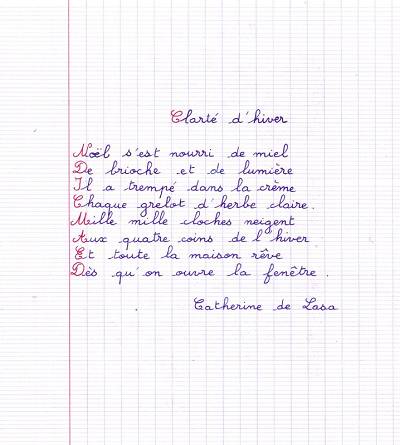 Clarté d'hiver
Noël s'est nourri de miel
De brioche et de lumière
Il a trempé dans la crème
Chaque grelot d'herbe claire.
Mille mille cloches neigent
Aux quatre coins de l'hiver
Et toute la maison rêve
Dès qu'on ouvre la fenêtre.
Catherine de Lasa